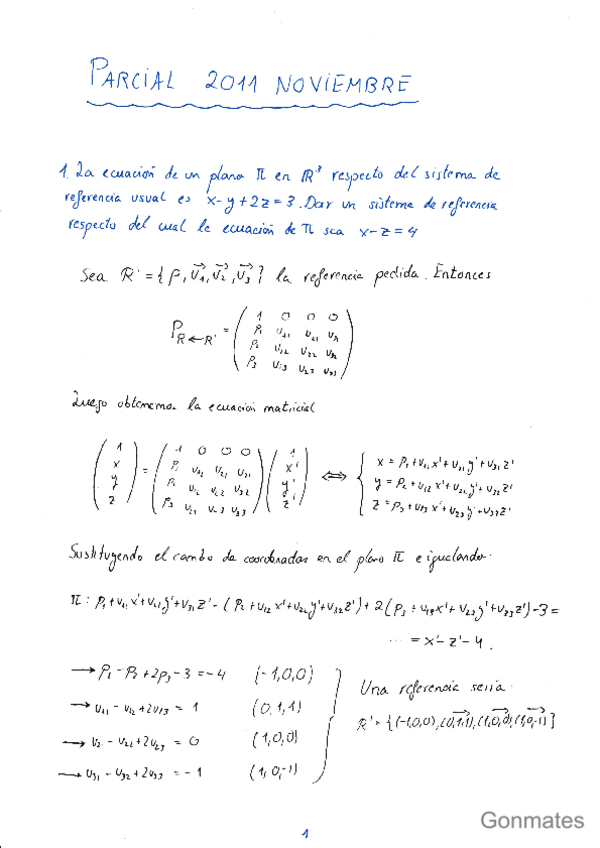 PARCIAL 2011 NOVIEMBRE
1. La ecuación de un plano π en ℝ³ respecto del sistema de
referencia usual es x-y+2z=3. Dar un sistema de referencia
respecto del cual la ecuación de π sea x-z=4
Sea R' = {P, v₁, v₂, v₃} la referencia pedida. Entonces
P R←R' = ( 1 0 0 0
P₁ v₁₁ v₂₁ v₃₁
P₂ v₁₂ v₂₂ v₃₂
P₃ v₁₃ v₂₃ v₃₃ )
Luego obtenemos la ecuación matricial
(1 x y z) = ( 1 0 0 0 ) (1 x' y' z') ⟺
x = P₁+v₁₁x'+v₂₁y'+v₃₁z'
y = P₂+v₁₂x'+v₂₂y'+v₃₂z'
z = P₃+v₁₃x'+v₂₃y'+v₃₃z'
Sustituyendo el cambio de coordenadas en el plano π e igualando:
π: P₁+v₁₁x'+v₂₁y'+v₃₁z' - (P₂+v₁₂x'+v₂₂y'+v₃₂z') + 2(P₃+v₁₃x'+v₂₃y'+v₃₃z')-3=
... = x'-z'-4.
→ P₁-P₂+2P₃-3=-4 (-1,0,0)
→ v₁₁-v₁₂+2v₁₃ = 1 (0,1,1)
→ v₂-v₂₂+2v₂₃ = 0 (1,0,0)
→ v₃₁-v₃₂+2v₃₃ = -1 (1,0,-1)
Una referencia sería:
R' = {(-1,0,0), (0,1,1), (1,0,0), (1,0,-1)}
1
Gonmates